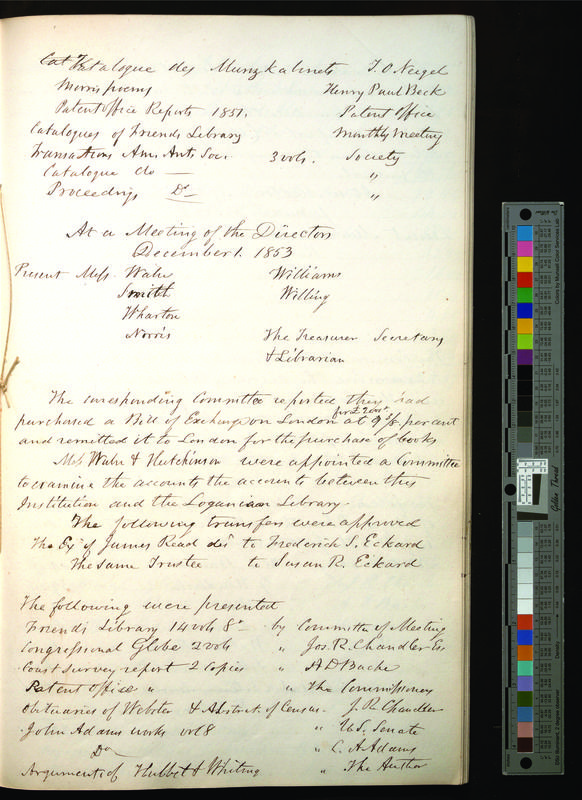 Cat Katalogue des Munzkabinets J. O. Neigel
Morris poems Henry Paul Beck
Patent Office Reports 1851. Patent Office
Catalogues of Friends Library Monthly Meeting
Transactions Am. Ants Soc. 3 vols. Society
Catalogue do — "
Proceedings Do "
At a Meeting of the Directors
December 1. 1853
Present Mess. Waln Williams
Smith Willing
Wharton
Norris The Treasurer Secretary
& Librarian
The coresponding Committee reported they had
purchased a Bill of Exchange on London for £200 at 9 5/8 per cent
and remitted it to London for the purchase of books
Mess Waln & Hutchinson were appointed a Committee
to examine the accounts the accounts between this
Institution and the Loganian Library
The following transfers were approved
The Exs of James Read decd to Frederick S. Eckard
The Same Trustee to Susan R. Eckard
The following were presented
Friends Library 14 vols 8o by Committe of Meeting
Congressional Globe 2 vols " Jos. R. Chandler Es
Coast Survey report 2 Copies " A D Bache
Patent Office " " The Commissioner
Obituaries of Webster & Abstract of Census. J. R. Chandler
John Adams works vol 8 " U.S. Senate
Do " C. A Adams
Argument of Hubbel & Whiting " The Author